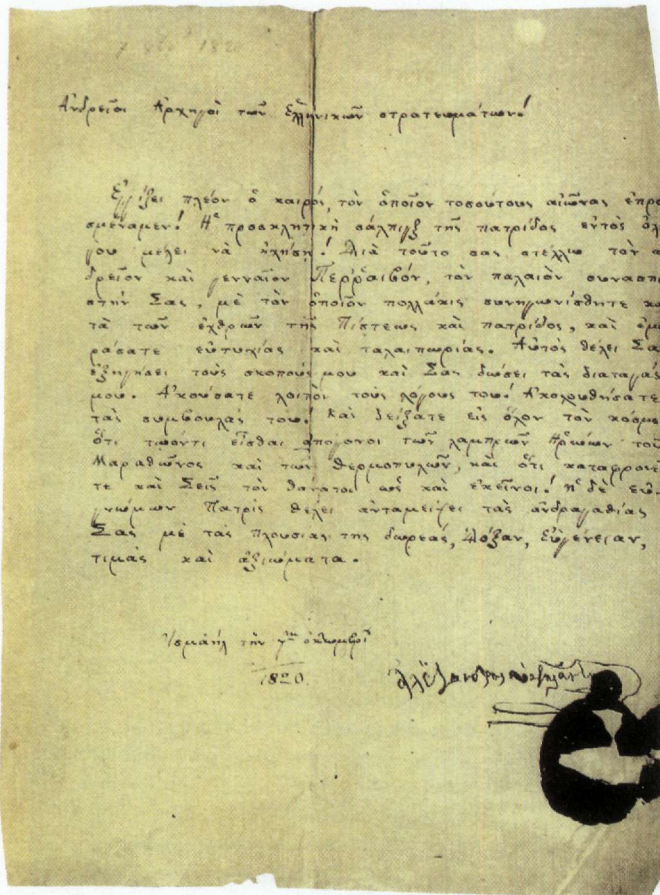 Ἀνδρεῖοι Ἀρχηγοὶ τῶν Ἑλληνικῶν στρατευμάτων!
Ἐγγίζει πλέον ὁ καιρός, τὸν ὁποῖον τοσούτους αἰῶνας ἐπρο
σμέναμεν! Ἡ προσκλητικὴ σάλπιγξ τῆς πατρίδος ἐντὸς ὀλί
γου μέλει νὰ ἠχήσῃ! Διὰ τοῦτο σας στέλλω τὸν ἀ
δρεῖον καὶ γενναῖον Περραιβόν, τὸν παλαιὸν συνασπι
στήν Σας, μὲ τὸν ὁποῖον πολλάκις συνηγωνίσθητε κα
τὰ τῶν ἐχθρῶν τῆς Πίστεως καὶ πατρίδος, καὶ ἐμοι
ράσατε εὐτυχίας καὶ ταλαιπωρίας. Αὐτὸς θέλει Σας
ἐξηγήσει τοὺς σκοπούς μου καὶ Σας δώσει τὰς διαταγάς
μου. Ἀκούσατε λοιπὸν τοὺς λόγους του! Ἀκολουθήσατε
τὰς συμβουλάς του! καὶ δείξατε εἰς ὅλον τὸν κόσμο
ὅτι τωόντι εἶσθαι ἀπόγονοι τῶν λαμπρῶν Ἡρώων τοῦ
Μαραθῶνος καὶ τῶν Θερμοπυλῶν, καὶ ὅτι καταφρονεῖ
τε καὶ Σεῖς τὸν θάνατον ὡς καὶ ἐκεῖνοι! ἡ δὲ εὐ
γνώμων Πατρὶς θέλει ἀνταμείψει τὰς ἀνδραγαθίας
Σας μὲ τὰς πλουσίας της δωρεάς, Δόξαν, Εὐγένειαν,
τιμὰς καὶ ἀξιώματα.
Ἰσμαὴλ τὴν 7ην ὀκτωμβρίου
1820
Ἀλέξανδρος Ὑψηλάντης